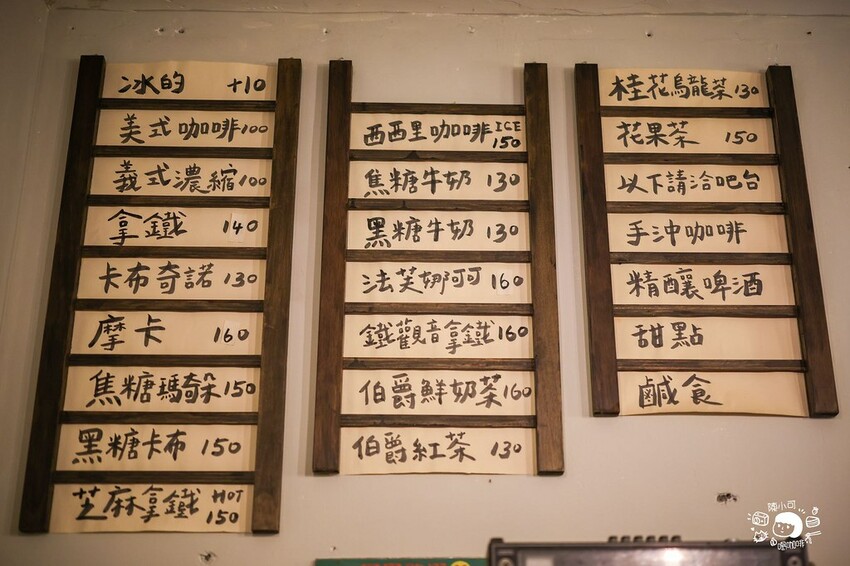 冰的 +10
美式咖啡 100
義式濃縮 100
拿鐵 140
卡布奇諾 130
摩卡 160
焦糖瑪朵 150
黑糖卡布 150
芝麻拿鐵 HOT 150
西西里咖啡 ICE 150
焦糖牛奶 130
黑糖牛奶 130
法芙娜可可 160
鐵觀音拿鐵 160
伯爵鮮奶茶 160
伯爵紅茶 130
桂花烏龍茶 130
花果茶 150
以下請洽吧台
手沖咖啡
精釀啤酒
甜點
鹹食
陳小可